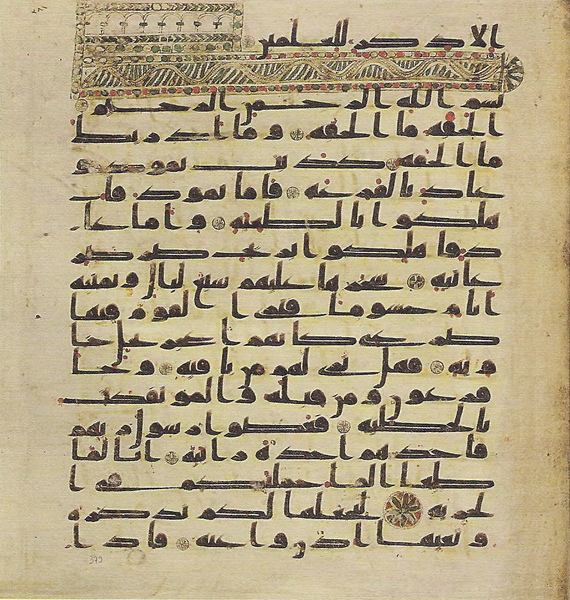 الا ذكر للعلمين
بسم الله الرحمن الرحيم
الحقه ما الحقه وما ادريك
ما الحقه كذبت ثمود و
عاد بالقرعه فاما ثمود فا
هلكوا بالطغيه واما عا
د فاهلكوا بريح صرصر
عاتيه سخرها عليهم سبع ليال وثمنيه
ايام حسوما فترى القوم فيها
صرعى كانهم اعجز نخل خا
ويه فهل ترى لهم من باقيه وجا
فرعون ومن قبله والموتفكت
بالخطيه فعصوا رسول ربهم
فاخذهم اخذة رابيه انا لما
طغا الما حملنكم في ا
لجريه لنجعلها لكم تذكره
وتعيها اذن وعيه فاذا